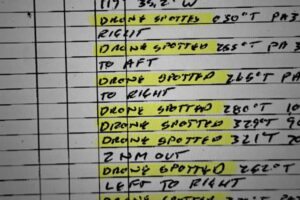 119° 35.2' W
DRONE SPOTTED 030°T PA
RIGHT
DRONE SPOTTED 255°T PA
TO AFT
DRONE SPOTTED 265°T PA
TO RIGHT
DRONE SPOTTED 280°T 10
DRONE SPOTTED 329°T 90
DRONE SPOTTED 321°T
2 NM OUT
DRONE SPOTTED 262°T
LEFT TO RIGHT